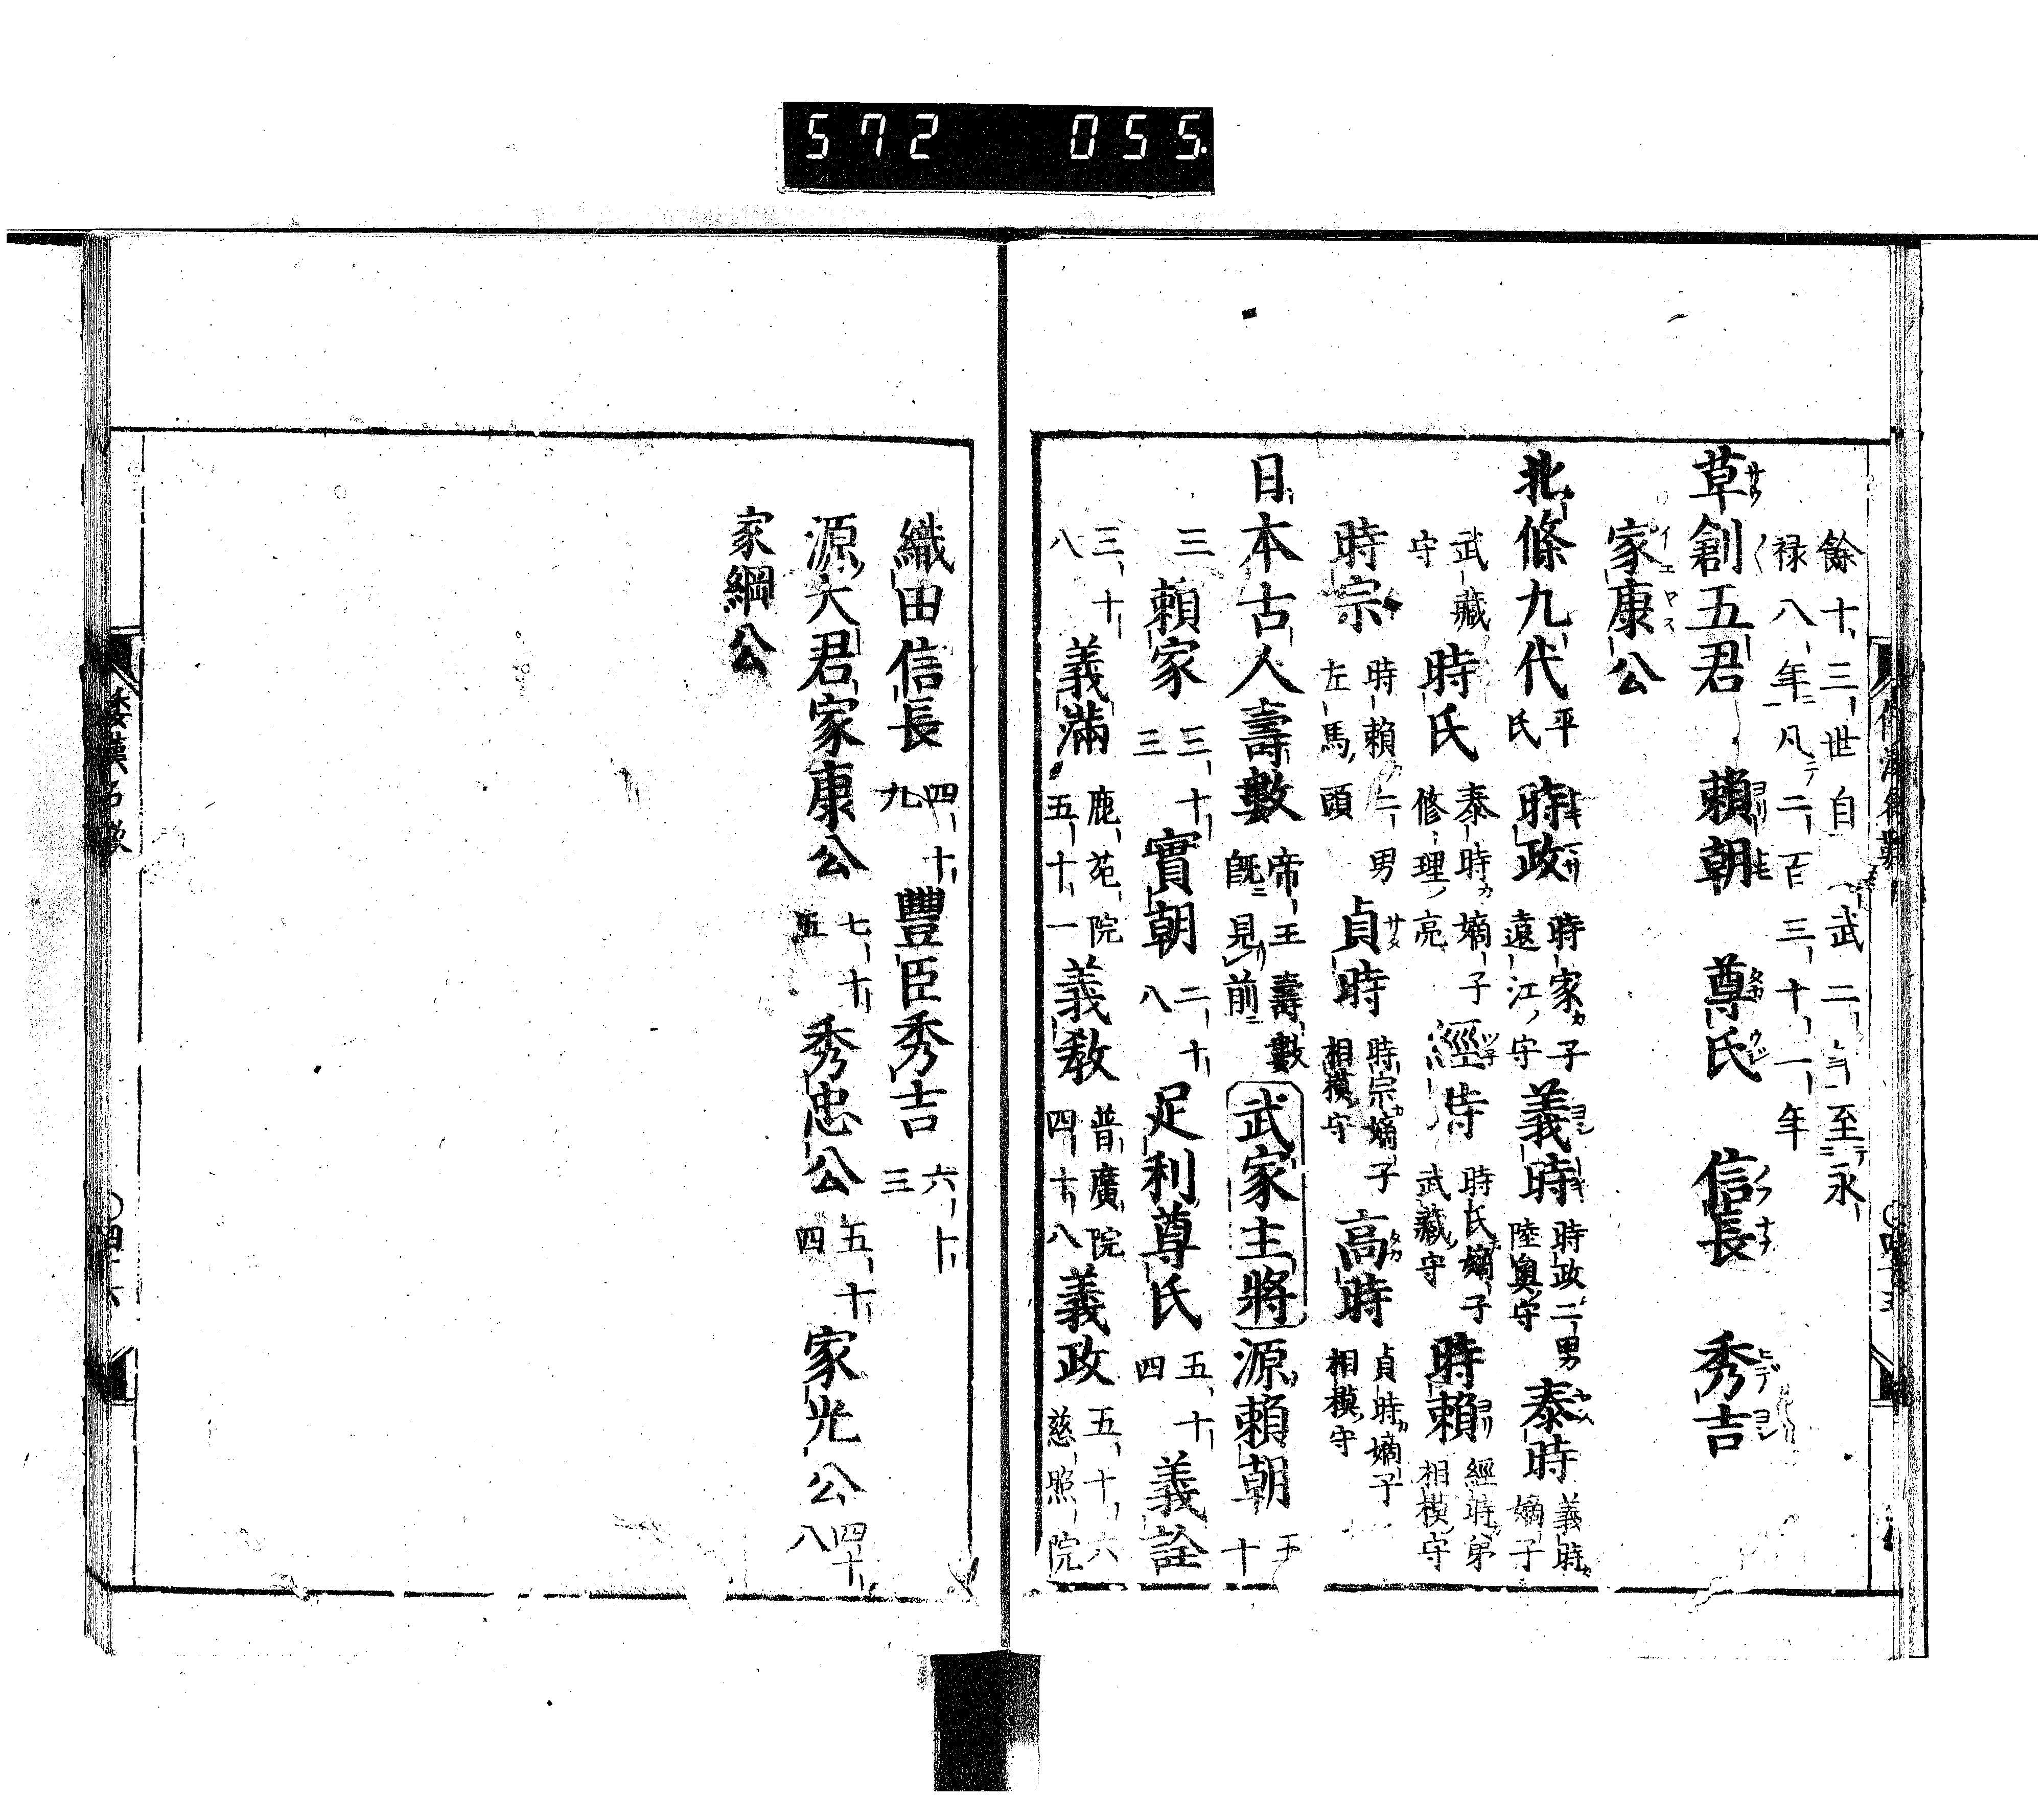 572 055.
餘十三世自 武二年至永
禄八年凡二百三十一年
草創五君 頼朝 尊氏 信長 秀吉
家康公
北條九代 平氏 時政 時家子遠江守 義時 時政二男陸奥守 泰時 義時嫡子
武藏守 時氏 泰時嫡子修理亮 經時 時氏嫡子武藏守 時賴 經時弟相模守
時宗 時賴二男左馬頭 貞時 時宗嫡子相模守 高時 貞時嫡子相模守
日本古人壽數 帝王壽數既見前 武家主將 源賴朝 五十
三 賴家 三十三 實朝 二十八 足利尊氏 五十四 義詮
三十八 義滿 鹿苑院五十一 義教 普廣院四十八 義政 五十六慈照院
織田信長 四十九 豐臣秀吉 六十三
源大君家康公 七十五 秀忠公 五十四 家光公 四十八
家綱公
倭漢名數
四十六